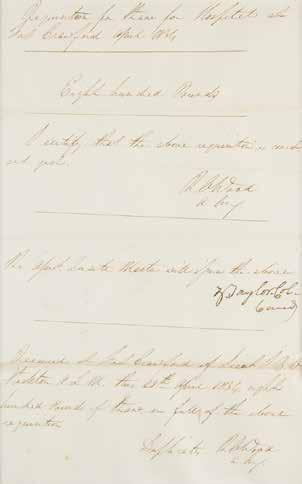 Requisition for straw for Hospital at
Fort Crawford April 1834
Eight hundred Pounds
I certify that the above requisition is correct
and just.
R C Wood
A Surg
The Asst Quarter Master will issue the above
Z Taylor Col
Comdg
Received at Fort Crawford of Lieut
this 20th April 1834 eight
hundred Pounds of straw in full of the above
requisition
Duplicate R C Wood
A Surg